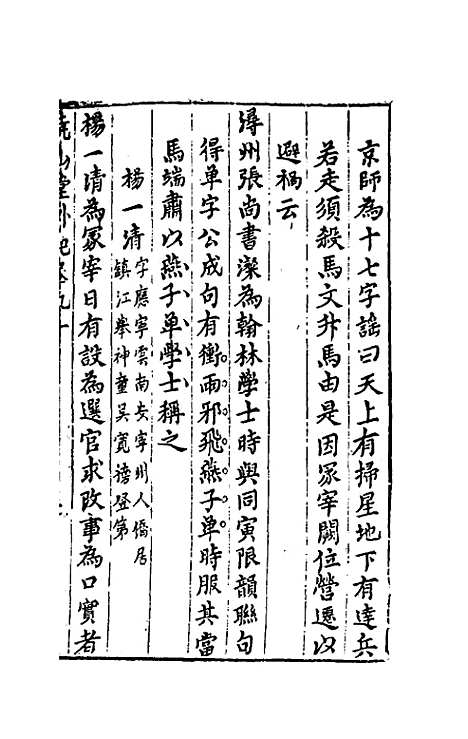 京師為十七字謡曰天上有掃星地下有達兵
若走須殺馬文升馬由是因冡宰闕位營遷以
避禍云
潯州張尚書潔為翰林學士時與同寅限韻聯句
得单字公成句有衝雨邪飛燕子单時服其當
馬端肅以燕子单學士稱之
楊一清
字應寧雲南安寧州人僑居
鎮江舉神童吴寛榜登第
楊一清為冡宰日有設為選官求改事為口實者
堯山堂外紀卷九十